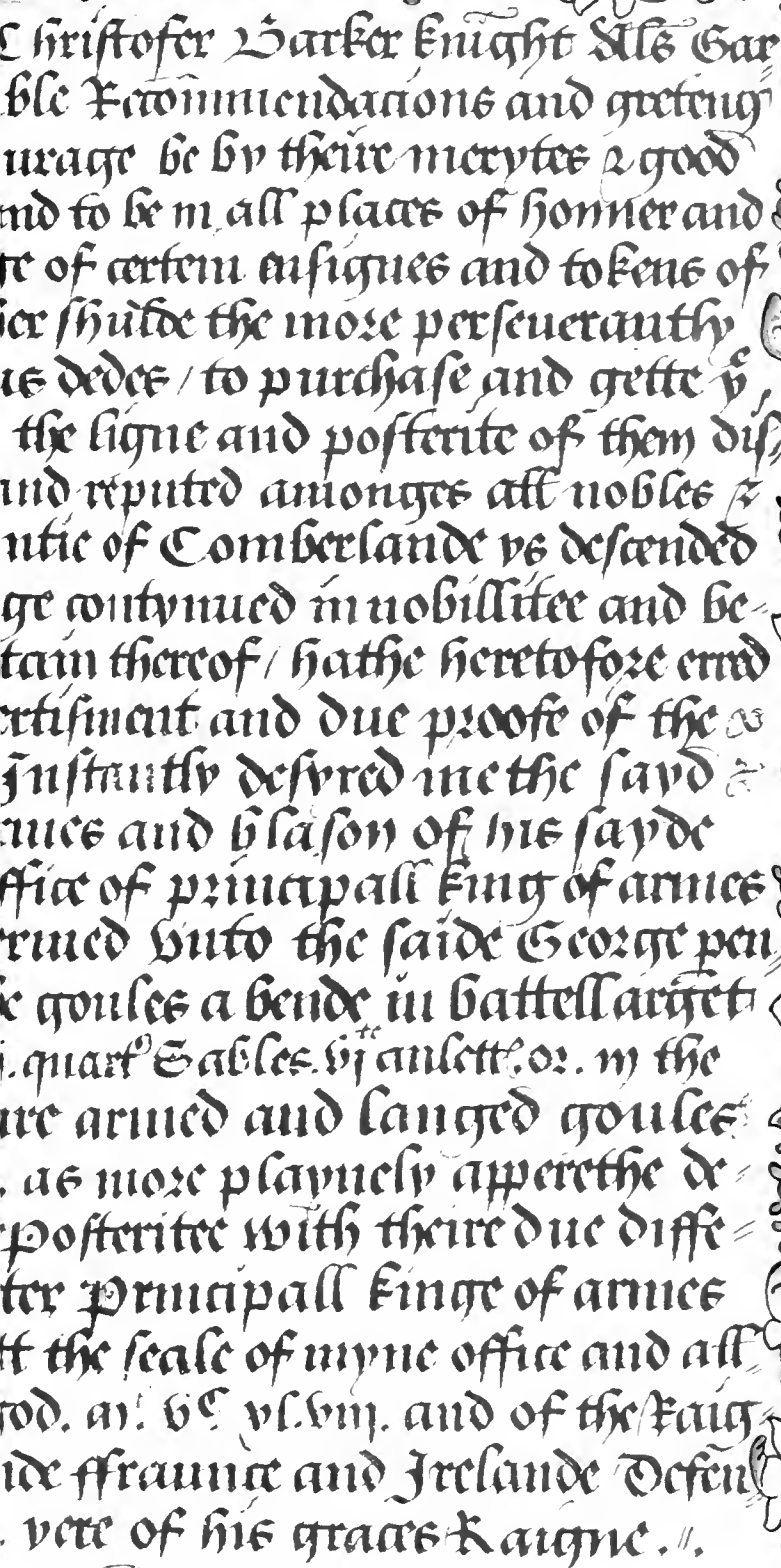 Christofer Barker knight Als Gar
ble Recommendacions and greteng
urage be by theire merytes & good
nd to be in all places of honner and
of certein ensignes and tokens of
er shulde the more perseverantly
us dedes / to purchase and gette ye
the ligne and posterite of them dis
and reputed amonges all nobles &
ntie of Comberlande ys descended
ge contynued in nobillitee and be-
tain thereof / hathe heretofore erred
ertisment and due proofe of the
Instantly desyred me the sayd
rmes and blason of his sayde
ffice of principall king of armes
ermed vnto the saide George pen
goules a bende in battell arget
. quart Sables. vj anlett or. in the
ure armed and langed goules
. as more playnely apperethe de
Posteritee with theire due diffe
ter Principall kinge of armes
tt the seale of myne office and all
god. m. vc xl. viij. and of the Raig
nde ffraunce and Irelande Defen
. yere of his graces Raigne .